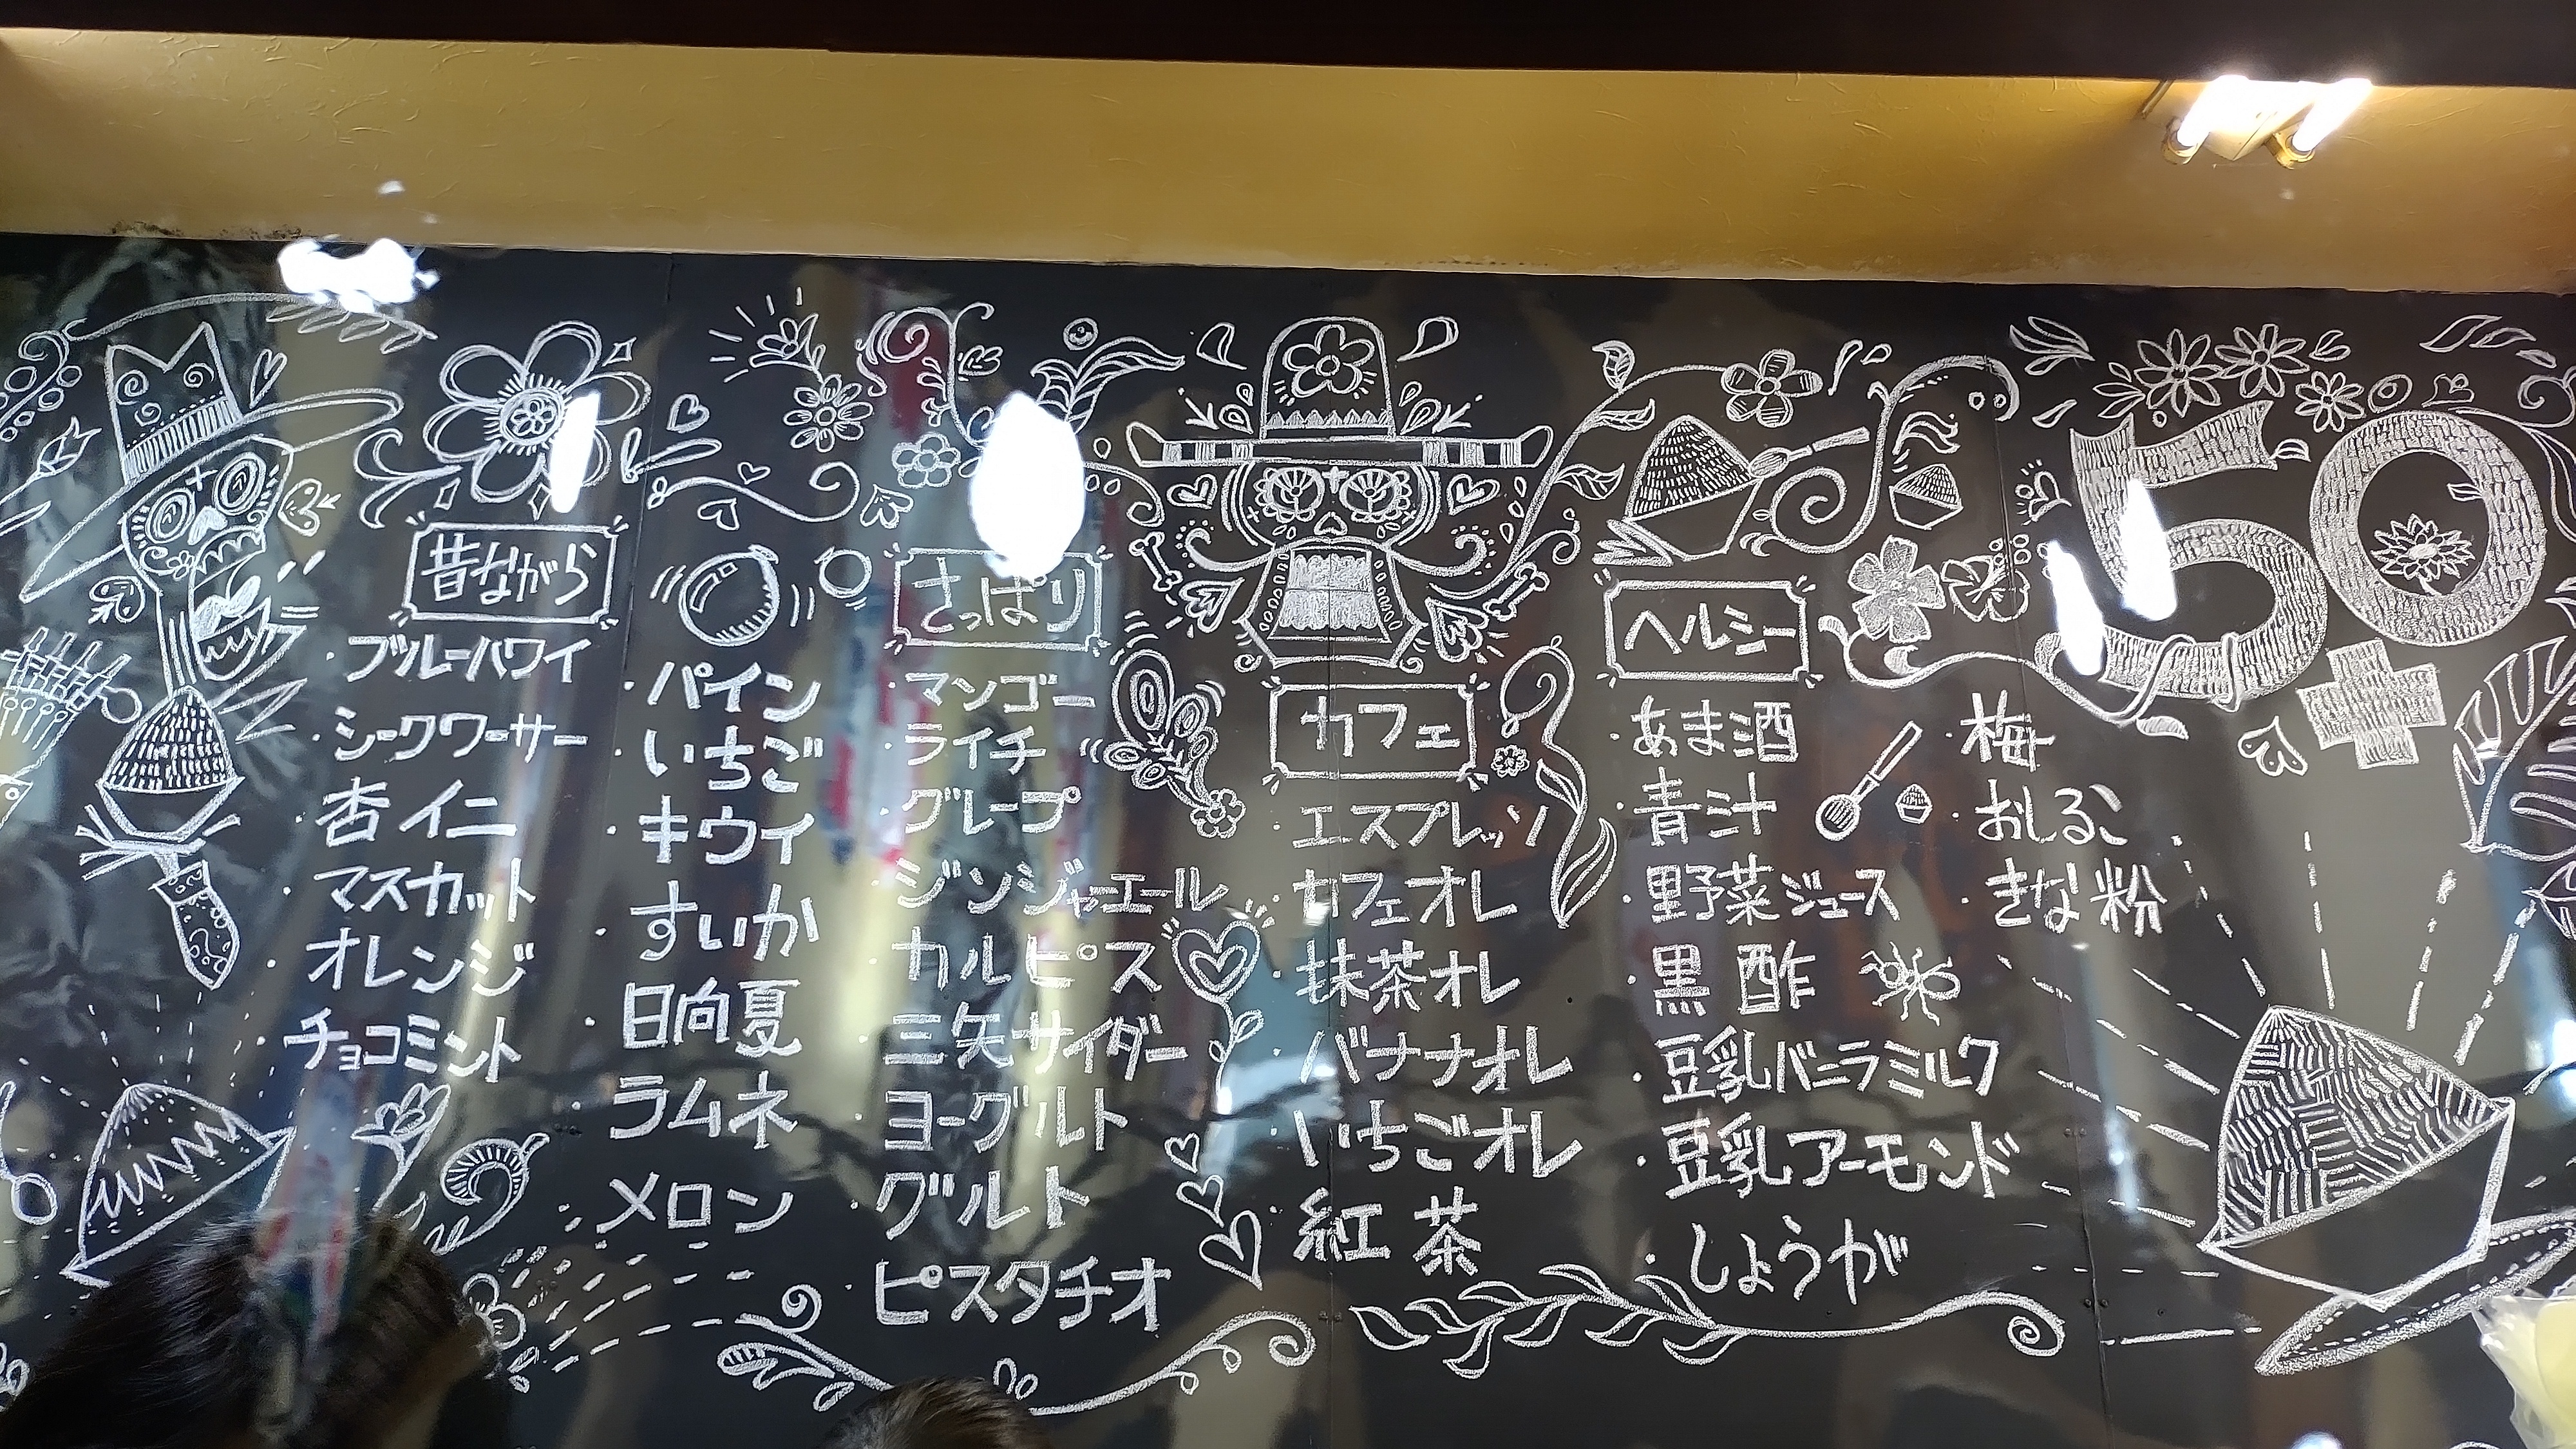 昔ながら
・ブルーハワイ
・シークワーサー
・杏イニ
・マスカット
・オレンジ
・チョコミント
・パイン
・いちご
・キウイ
・すいか
・日向夏
・ラムネ
・メロン
さっぱり
・マンゴー
・ライチ
・グレープ
・ジンジャーエール
・カルピス
・三矢サイダー
・ヨーグルト
・グルト
・ピスタチオ
カフェ
・エスプレッソ
・カフェオレ
・抹茶オレ
・バナナオレ
・いちごオレ
・紅茶
ヘルシー
・あま酒
・青汁
・野菜ジュース
・黒酢
・豆乳バニラミルク
・豆乳アーモンド
・しょうが
・梅
・おしるこ
・きな粉
50
+